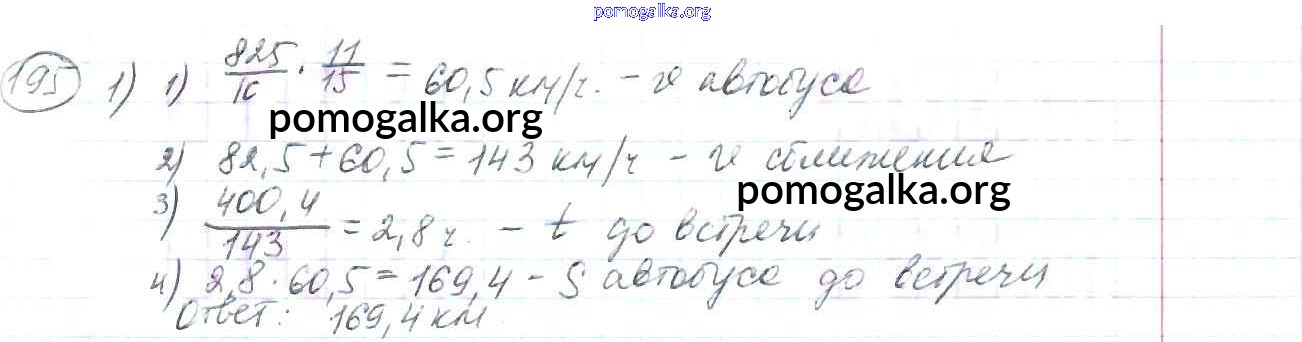 pomogalka.org
195 1) 1) 825/10 · 11/15 = 60,5 км/ч. – v автобуса
pomogalka.org
2) 82,5 + 60,5 = 143 км/ч – v сближения
pomogalka.org
3) 400,4/143 = 2,8 ч. – t до встречи
4) 2,8 · 60,5 = 169,4 – S автобуса до встречи
Ответ: 169,4 км